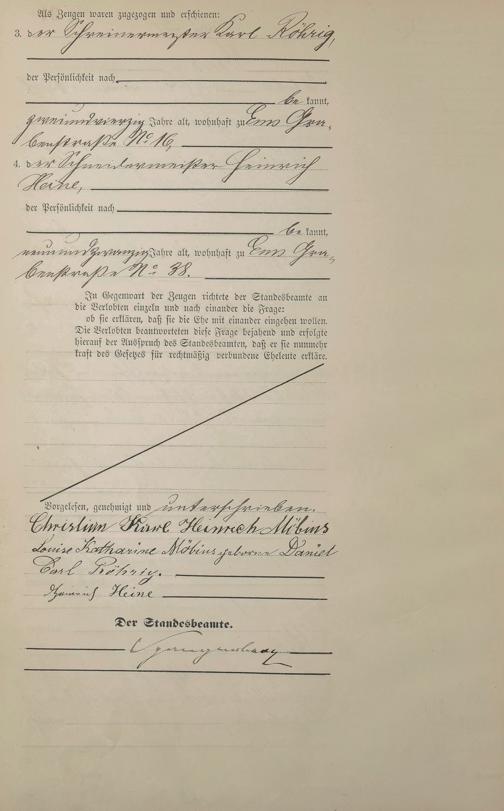 Als Zeugen waren zugezogen und erschienen:
3. der Schreinermeister Karl Röhrig,
der Persönlichkeit nach
be kannt,
zweiundvierzig Jahre alt, wohnhaft zu Ems Gra-
benstraße No 16,
4. der Schneidermeister Heinrich
Heine,
der Persönlichkeit nach
be kannt,
neunundzwanzig Jahre alt, wohnhaft zu Ems Gra-
benstraße No 38.
In Gegenwart der Zeugen richtete der Standesbeamte an
die Verlobten einzeln und nach einander die Frage:
ob sie erklären, daß sie die Ehe mit einander eingehen wollen.
Die Verlobten beantworteten diese Frage bejahend und erfolgte
hierauf der Ausspruch des Standesbeamten, daß er sie nunmehr
kraft des Gesetzes für rechtmäßig verbundene Eheleute erkläre.
Vorgelesen, genehmigt und unterschrieben.
Christian Karl Heinrich Möbius
Louise Katharine Möbius geborne Daniel
Carl Röhrig.
Heinrich Heine
Der Standesbeamte.